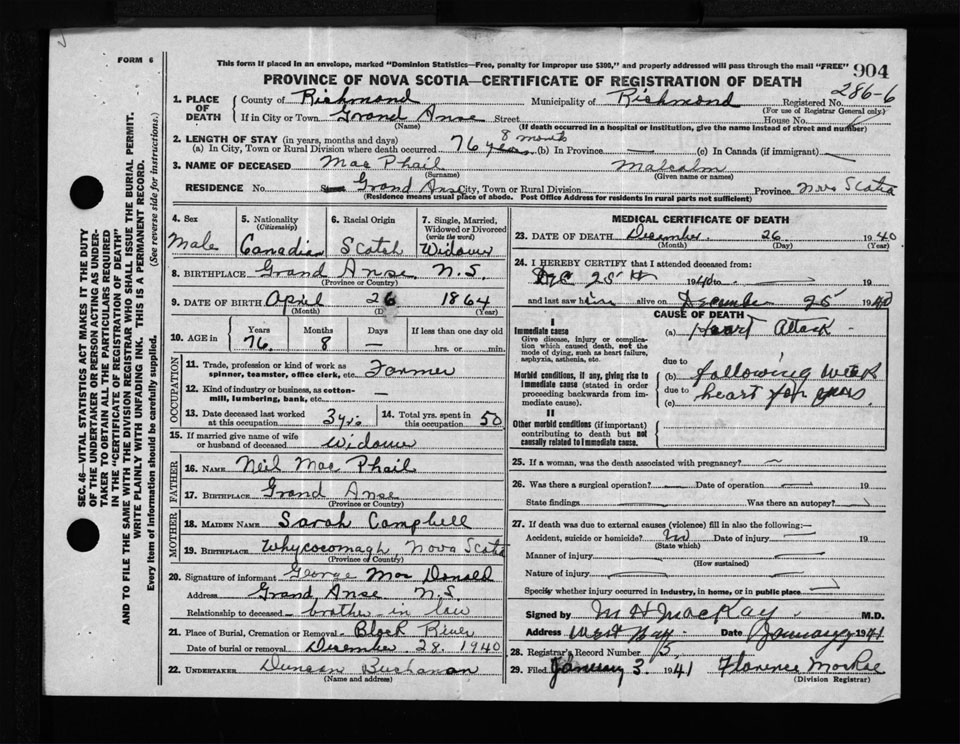 FORM 6
This form if placed in an envelope, marked "Dominion Statistics—Free, penalty for improper use $300," and properly addressed will pass through the mail "FREE"
904
PROVINCE OF NOVA SCOTIA—CERTIFICATE OF REGISTRATION OF DEATH
286-6
1. PLACE OF DEATH
County of Richmond Municipality of Richmond Registered No.
(For use of Registrar General only.)
If in City or Town Grand Anse Street House No.
(Name) (If death occurred in a hospital or institution, give the name instead of street and number)
2. LENGTH OF STAY (in years, months and days)
(a) In City, Town or Rural Division where death occurred 76 years 8 months (b) In Province — (c) In Canada (if immigrant) —
3. NAME OF DECEASED Mac Phail Malcolm
(Surname) (Given name or names)
RESIDENCE No. Street Grand Anse City, Town or Rural Division Province Nova Scotia
(Residence means usual place of abode. Post Office Address for residents in rural parts not sufficient)
4. Sex 5. Nationality (Citizenship) 6. Racial Origin 7. Single, Married, Widowed or Divorced (write the word)
Male Canadian Scotch Widower
8. BIRTHPLACE Grand Anse N.S.
(Province or Country)
9. DATE OF BIRTH April 26 1864
(Month) (Year)
10. AGE in Years Months Days If less than one day old
76. 8 — hrs. or min.
OCCUPATION
11. Trade, profession or kind of work as spinner, teamster, office clerk, etc. Farmer
12. Kind of industry or business, as cotton-mill, lumbering, bank, etc. —
13. Date deceased last worked at this occupation 3 yrs. 14. Total yrs. spent in this occupation 50
15. If married give name of wife or husband of deceased widower
FATHER
16. NAME Neil Mac Phail
17. BIRTHPLACE Grand Anse
(Province or Country)
MOTHER
18. MAIDEN NAME Sarah Campbell
19. BIRTHPLACE Whycocomagh, Nova Scotia
(Province or Country)
20. Signature of informant George Mac Donald
Address Grand Anse N.S.
Relationship to deceased brother-in law
21. Place of Burial, Cremation or Removal Black River
Date of burial or removal December 28. 1940
22. UNDERTAKER Duncan Buchanan
(Name and address)
MEDICAL CERTIFICATE OF DEATH
23. DATE OF DEATH December 26 1940
(Month) (Day) (Year)
24. I HEREBY CERTIFY that I attended deceased from:
Dec 25th 1940 to — 19
and last saw him alive on December 25 1940
CAUSE OF DEATH
I
Immediate cause
Give disease, injury or complication which caused death, not the mode of dying, such as heart failure, asphyxia, asthenia, etc.
(a) Heart Attack
due to
Morbid conditions, if any, giving rise to immediate cause (stated in order proceeding backwards from immediate cause).
(b) following weak
due to
(c) heart for years
II
Other morbid conditions (if important) contributing to death but not causally related to immediate cause.
25. If a woman, was the death associated with pregnancy? —
26. Was there a surgical operation? — Date of operation — 19
State findings Was there an autopsy?
27. If death was due to external causes (violence) fill in also the following:—
Accident, suicide or homicide? Date of injury — 19
(State which)
Manner of injury —
(How sustained)
Nature of injury —
Specify whether injury occurred in industry, in home, or in public place
Signed by M H MacKay M.D.
Address West Bay Date January 1941
28. Registrar's Record Number
29. Filed January 3. 1941 Florence MacRae
(Division Registrar)
SEC. 46—VITAL STATISTICS ACT MAKES IT THE DUTY
OF THE UNDERTAKER OR PERSON ACTING AS UNDER-
TAKER TO OBTAIN ALL THE PARTICULARS REQUIRED
IN THE "CERTIFICATE OF REGISTRATION OF DEATH"
AND TO FILE THE SAME WITH THE DIVISION REGISTRAR WHO SHALL ISSUE THE BURIAL PERMIT.
WRITE PLAINLY WITH UNFADING INK. THIS IS A PERMANENT RECORD.
Every item of information should be carefully supplied. (See reverse side for instructions.)